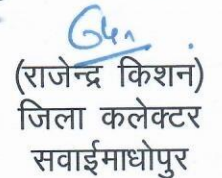 (राजेन्द्र किशन)
जिला कलेक्टर
सवाईमाधोपुर